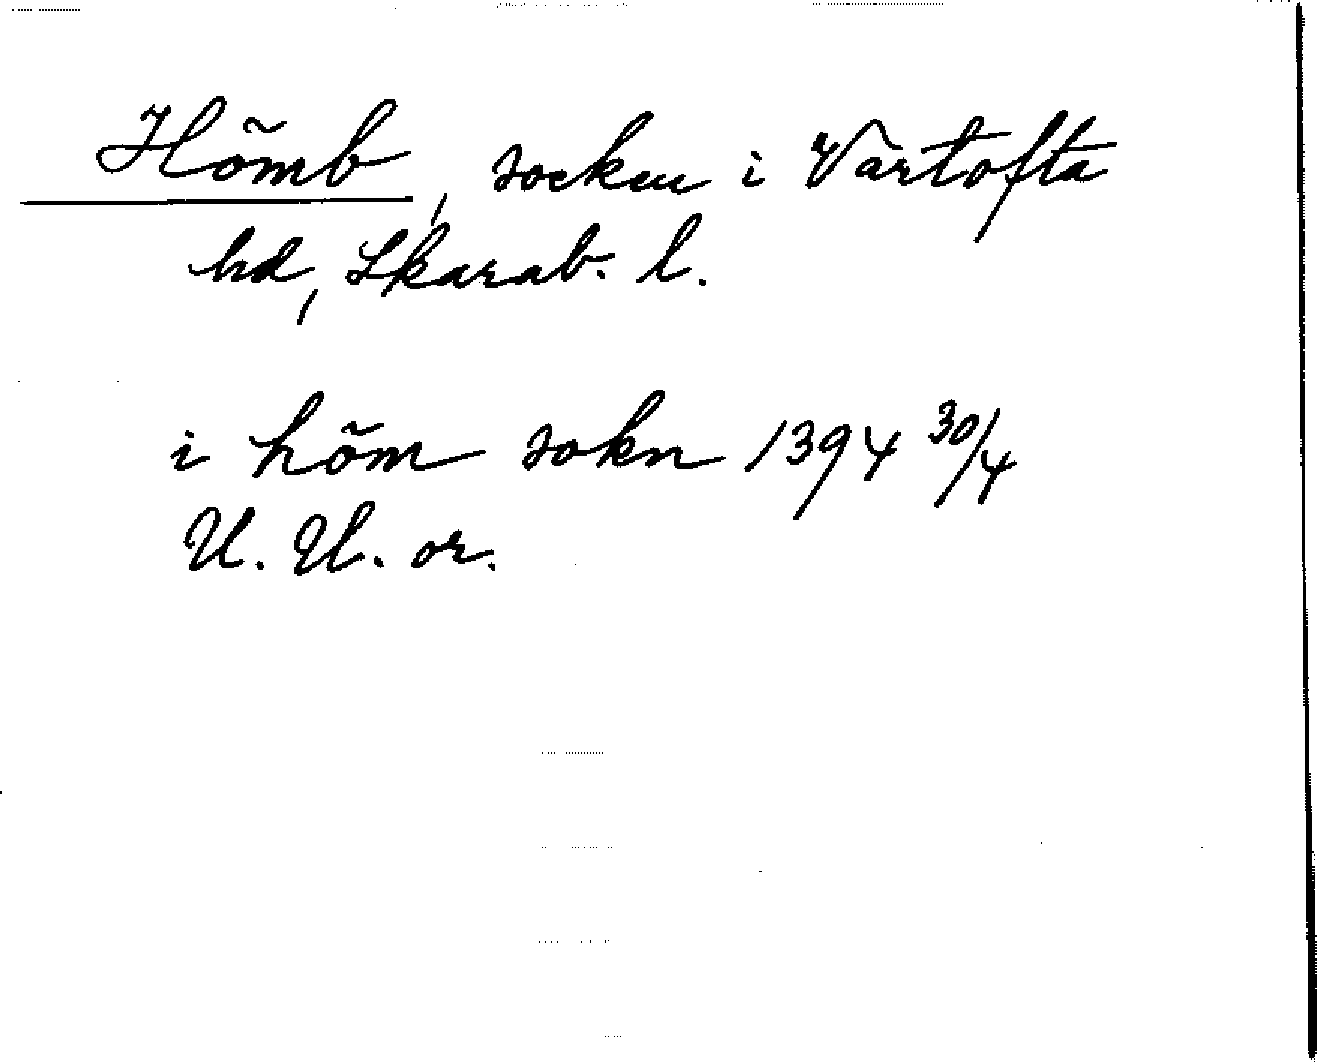 Hömb, socken i Vartofta
hd, Skarab. l.
i höm sokn 1394 30/4
U. U. or.